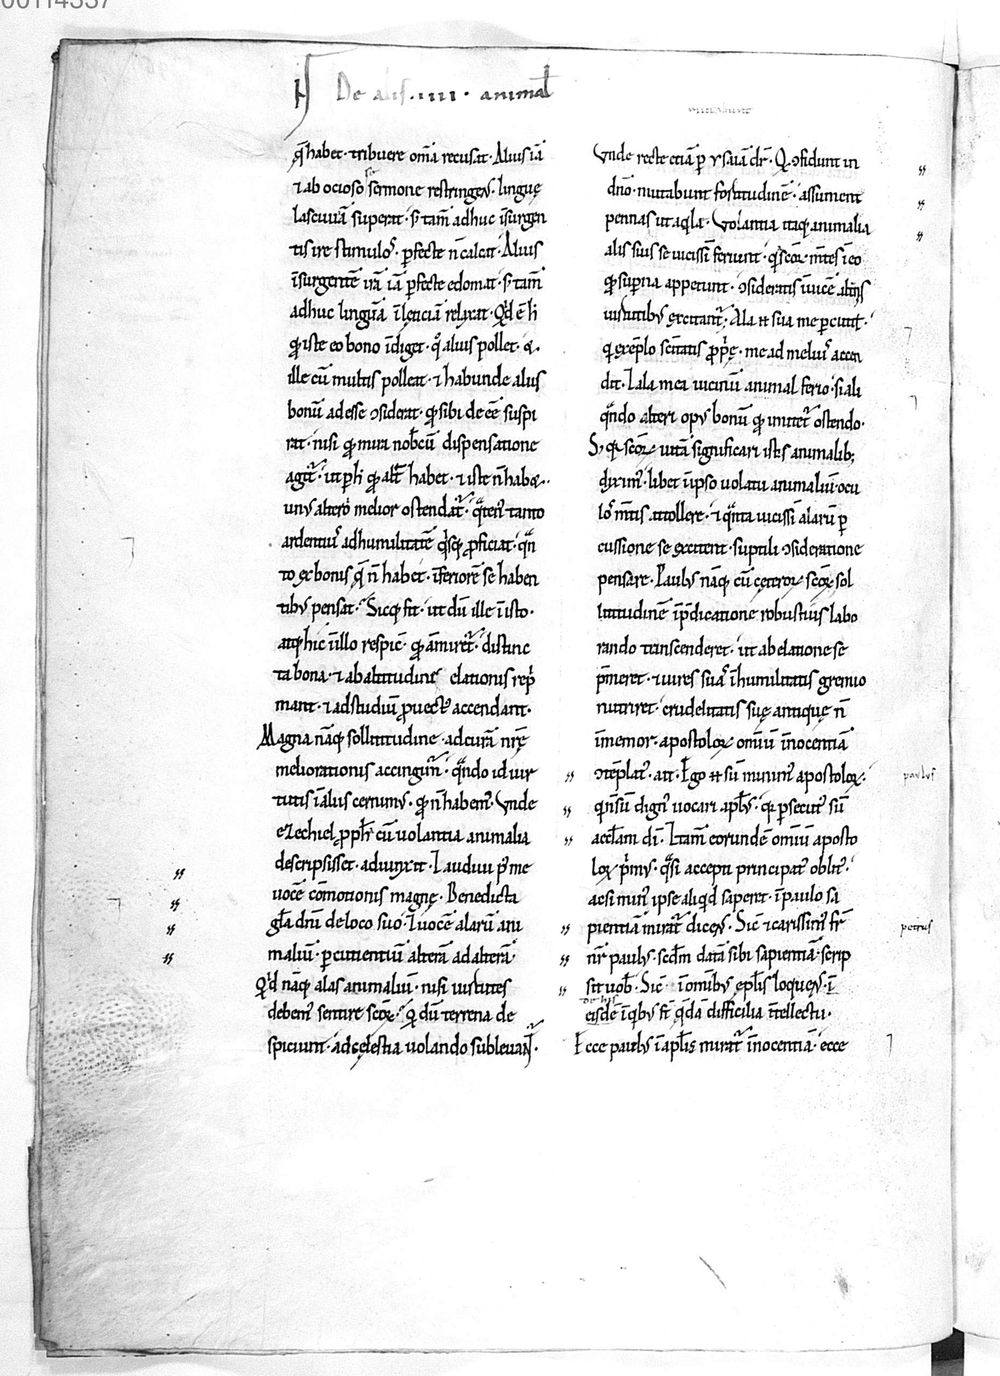 De alis .iiii. animal̄
q̄ habet · tribuere om̄a recusat · Alius iā
⁊ ab ocioso sermone restringens linguę
lasciuiā superat · s; tam̄ adhuc īsurgen
tis ire stimulos perfecte n̄ calcat · Alius
īsurgentē irā iā perfecte edomat · s; tam̄
adhuc linguā ī lęticiā relaxat · Qid ē h̄
q̄ iste eo bono īdiget · q̊ alius pollet · ⁊
ille cū multis polleat · ⁊ habunde alius
bonū adesse ɔsiderat · q̄ sibi deēe suspi
rat · nisi q̄ mira nobcū dispensatione
agit᷑ · ut p̱ h̄ q̄ alt̄ habet · ⁊ iste n̄ habet ·
unus altero melior ostendat᷑ · q̄ten; tanto
ardentius ad humilitatē q̇sq; proficiat · q̄n
to ex bonis q̄ n̄ habet · īferiorē se haben
tibus pensat · Sicq; fit · ut dū ille ī isto ·
atq; hic ī illo respicit q̄ āmiret᷑ · distinc
ta bona · ⁊ ab altitudine elationis rep̄
mant · ⁊ ad studiū prouectus accendant ·
Magna nāq; sollicitudine · ad curā nr̄ę
meliorationis accingim᷑ · q̄ndo id uir
tutis ī alius cernimus · q̄ n̄ habem; · Vnde
ezechiel ppħ cū uolantia animalia
descripsisset · adiunxit · ⁊ audiui p̄ me
uocē cōmotionis magnę · Benedicta
gl̄a dn̄i de loco suo · ⁊ uocē alarū ani
maliū · percutientiū alterā ad alterā ·
Qid nāq; alas animaliū · nisi uirtutes
debem; sentire scōꝝ · q̄ dū terrena de
spiciunt · ad cęlestia uolando subleuant᷑ ·
Vnde recte etiā p̱ ysaiā dr̄ · Q̄ ɔfidunt in
dn̄o · mutabunt fortitudinē · assument
pennas ut aq̇la · Volantia itaq; animalia
alis suis se uicissī feriunt · q̄ scōꝝ m̄tes ī eo
q̄ sup̱na appetunt · ɔsideratis īuicē alt̄nis
uirtutibus excitant᷑ · Ala n̄ sua me percutit ·
q̇ exēplo sc̄itatis ppr̄ię · me ad melius accen
dit · ⁊ ala mea uicinū animal ferio · si ali
q̄ndo alteri opus bonū q̄ imitet᷑ ostendo ·
S; q̄ scōꝝ uitā significari istis animalib;
diximus · libet ī ipso uolatu animaliū · ocu
los m̄tis attollere · ⁊ q̄nta uicissī alarū p̱
cussione se excitent · suptili ɔsideratione
pensare · Paulus nāq; cū cęteroꝝ scōꝝ sol
licitudinē ī p̄dicatione robustius labo
rando transcenderet · ut ab elatione se
p̄meret · ⁊ uires suas ī humilitatis gremio
nutriret · crudelitatis suę antiquę n̄
īmemor · apostoloꝝ omīū īnocentiā
ɔtēplatus · ait · Ego n̄ sū minim; apostoloꝝ ·
q̇ n̄ sū dignus uocari apl̄s · q̄ p̱secutus sū
ecclām dī · ⁊ tam̄ eorundē omīū aposto
loꝝ p̄mus · q̄si accepti principatus oblitus ·
acsi minus ipse aliq̇d saperet · ī paulo sa
pientiā mirat᷑ dicens · Sic̄ ⁊ carissim; fr̄
nr̄ paulus · scd̄m datā sibi sapientiā · scrip
sit uob̄ · Sic̄ ⁊ ī omībus ep̄lis loquens ī
eisdē ī q̇bus st̄ q̄dā difficilia ītellectu ·
Ecce paulus ī apl̄is mirat᷑ īnocentiā · ecce
paulus
petrus